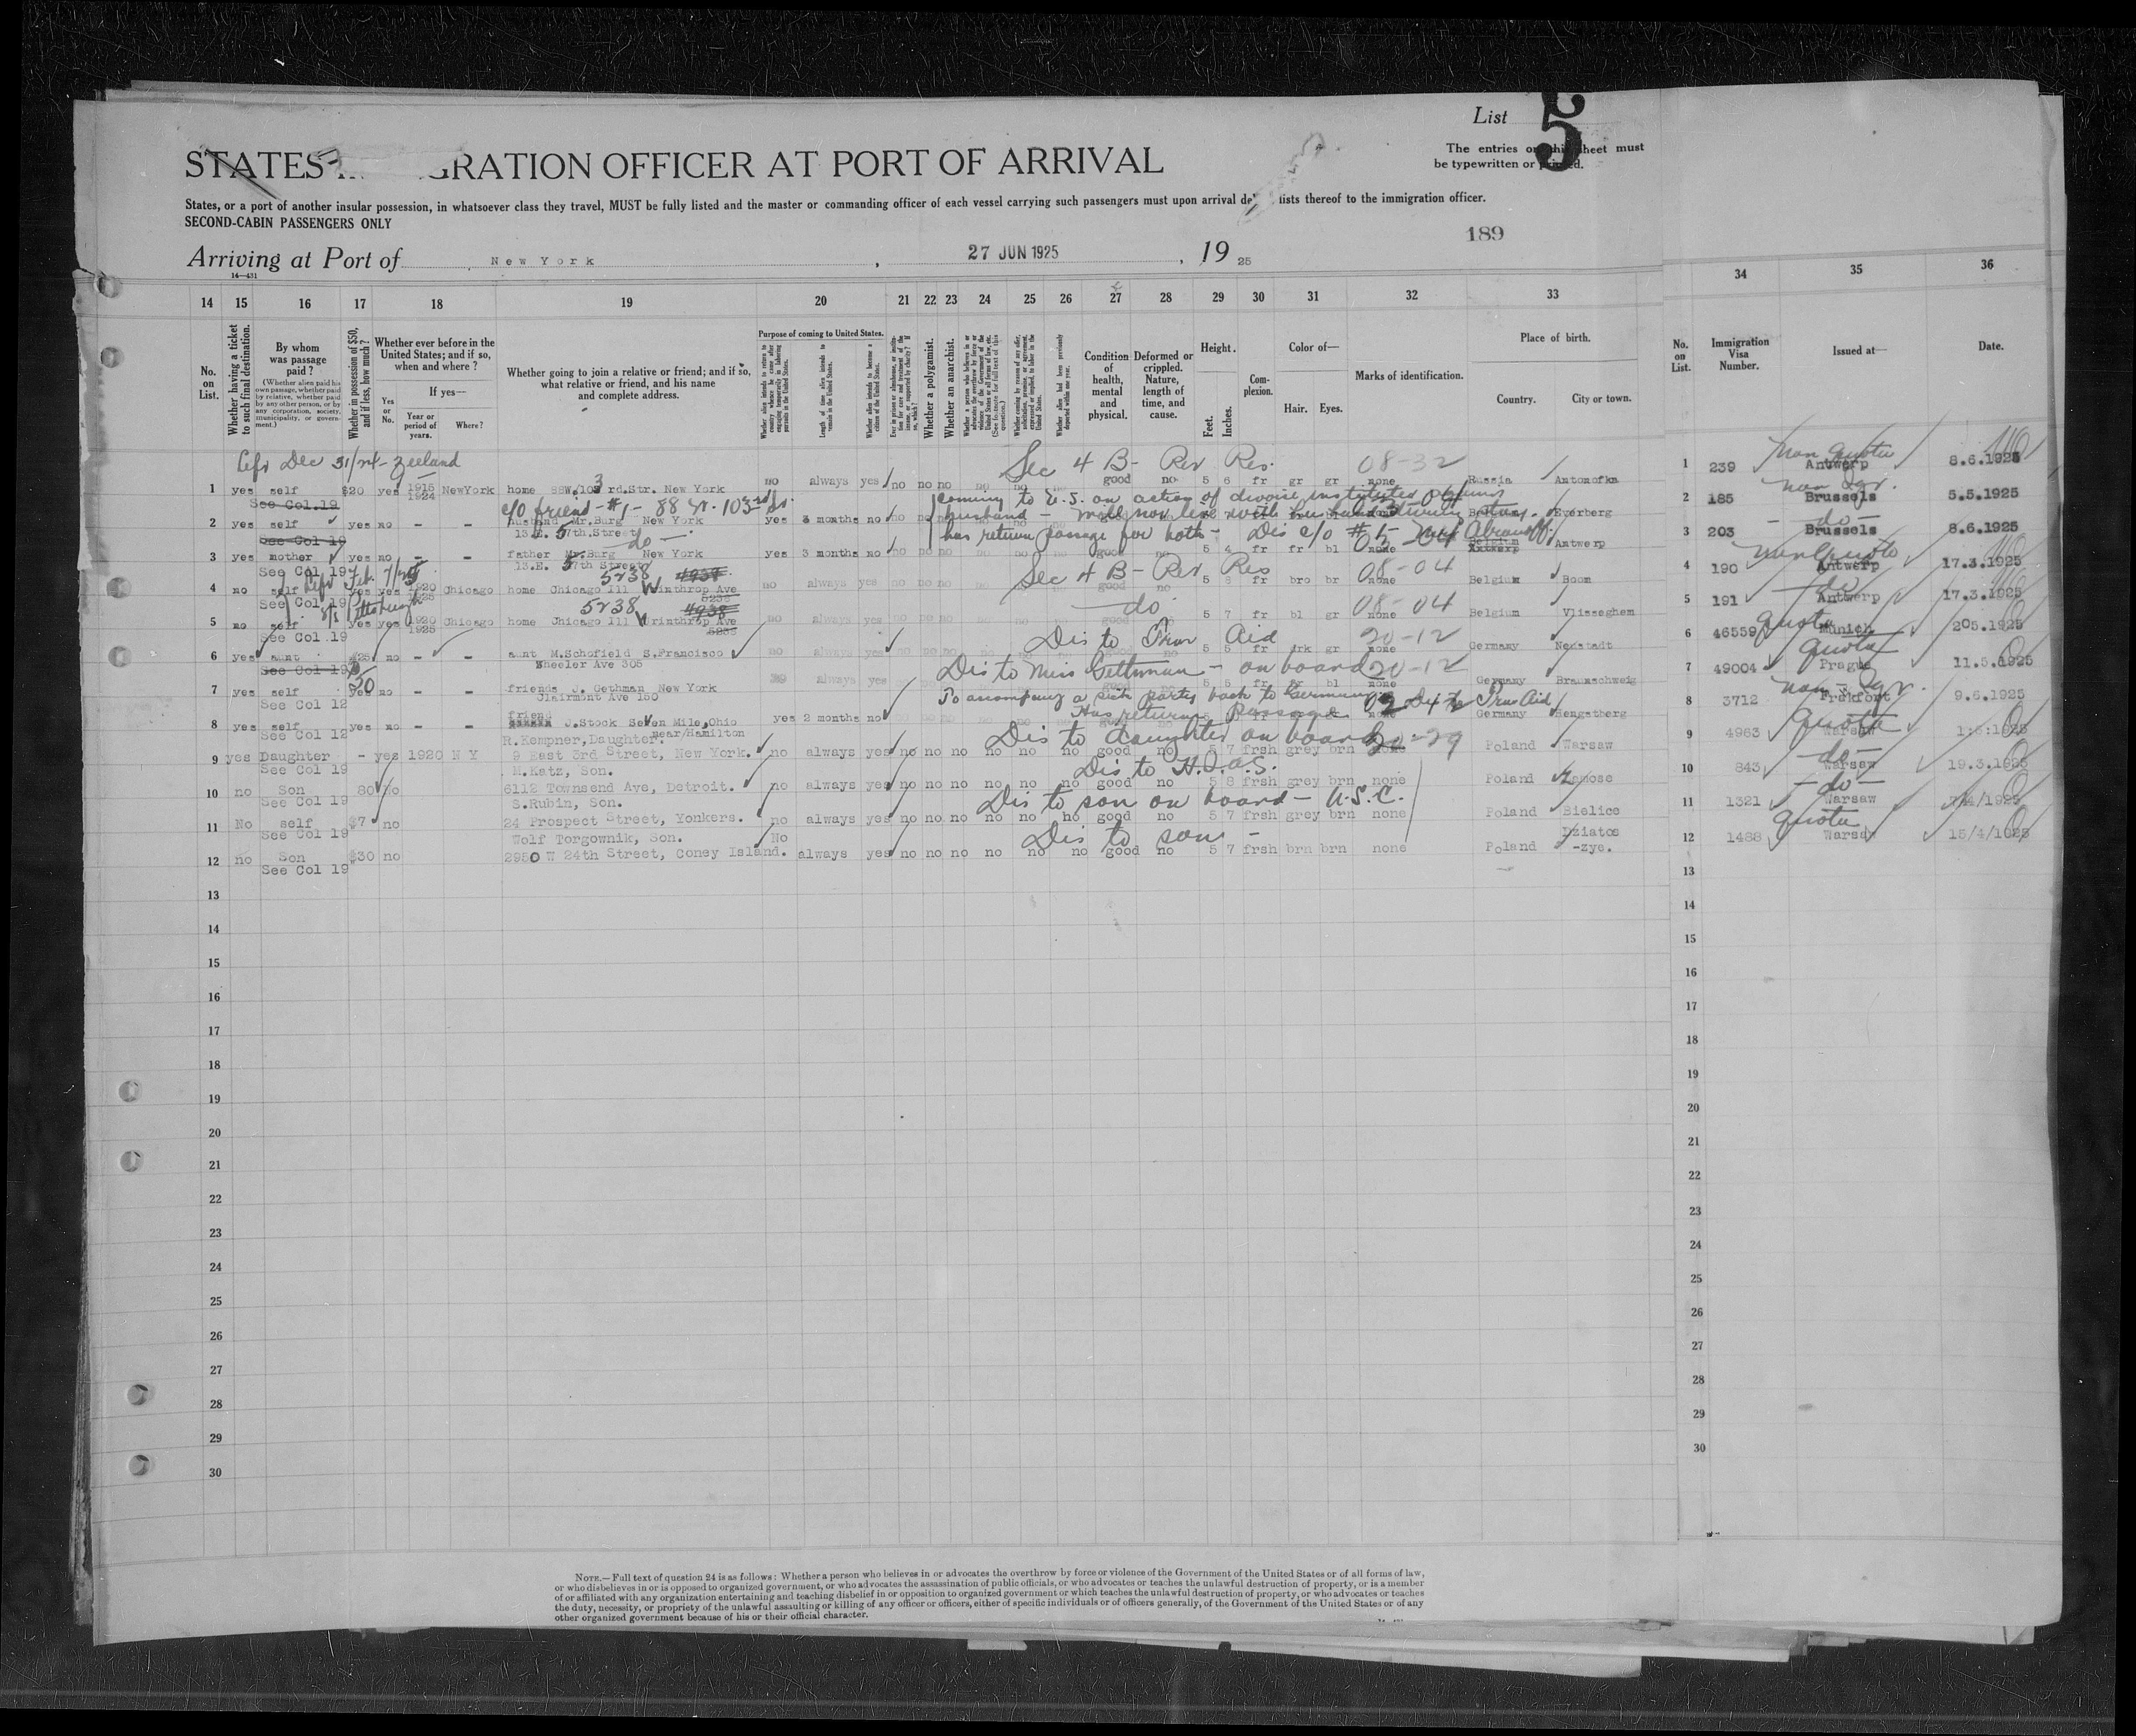 List 5
The entries on this sheet must
be typewritten or printed.
STATES RATION OFFICER AT PORT OF ARRIVAL
States, or a port of another insular possession, in whatsoever class they travel, MUST be fully listed and the master or commanding officer of each vessel carrying such passengers must upon arrival lists thereof to the immigration officer.
SECOND-CABIN PASSENGERS ONLY
189
Arriving at Port of New York , 27 JUN 1925 , 19 25
14—431
14 15 16 17 18 19 20 21 22 23 24 25 26 27 28 29 30 31 32 33 34 35 36
No. on List.
Whether having a ticket to such final destination.
By whom was passage paid?
(Whether alien paid his own passage, whether paid by relative, whether paid by any other person, or by any corporation, society, municipality, or government.)
Whether in possession of $50, and if less, how much?
Whether ever before in the United States; and if so, when and where?
Yes or No.
If yes—
Year or period of years.
Where?
Whether going to join a relative or friend; and if so, what relative or friend, and his name and complete address.
Purpose of coming to United States.
Whether alien intends to return to country whence he came after engaging temporarily in laboring pursuits in the United States.
Length of time alien intends to remain in the United States.
Whether alien intends to become a citizen of the United States.
Whether a polygamist.
Whether an anarchist.
Condition of health, mental and physical.
Deformed or crippled. Nature, length of time, and cause.
Height.
Feet. Inches.
Complexion.
Color of—
Hair. Eyes.
Marks of identification.
Place of birth.
Country. City or town.
No. on List.
Immigration Visa Number.
Issued at—
Date.
Left Dec 31/24 - Zeeland Sec 4 B - Rev Res. 08-32 Non Quota
1 yes self $20 yes 1915 1924 NewYork home 88W/103 rd.Str. New York no always yes no no no no no good no 5 6 fr gr gr none Russia Antonofka 1 239 Antwerp 8.6.1925
See Col.19 c/o friend - #1 - 88 W. 103rd St. coming to U.S. on action of divorce instituted against non Igr.
2 yes self yes no - - husband Mr.Burg New York yes 3 months no husband - will not live with her husband during stay. Everberg 2 185 Brussels 5.5.1925
See Col 19 13.E. 57th.Street do has return passage for both - Dis c/o #1 - do -
3 yes mother yes no - - father Mr.Burg New York yes 3 months no no no no good no 5 4 fr fr bl none Belgium Antwerp 3 203 Brussels 8.6.1925
See Col 19 Left Feb. 13.E. 57th Street 5238 4938 Sec 4 B - Rev Res 08-04 Non Quota
4 no self yes yes 1920 1925 Chicago home Chicago Ill Winthrop Ave no always yes no no no no good no 5 8 fr bro br none Belgium Boom 4 190 Antwerp 17.3.1925
See Col 19 S/S Pittsburgh 5238 4938 do 08-04 do
5 no self yes yes 1920 1925 Chicago home Chicago Ill Winthrop Ave no always yes no no no good 5 7 fr bl gr none Belgium Vlisseghem 5 191 Antwerp 17.3.1925
See Col 19 Dis to Trav Aid 20-12 Quota
6 yes aunt $25 no - - aunt M.Schofield S.Francisco no always yes no no no 5 5 fr drk gr none Germany Neustadt 6 46559 Munich 205.1925
See Col 19 Wheeler Ave 305 Dis to Miss Gethman - on board 20-12 Quota
7 yes self 50 no - - friends J. Gethman New York always yes 5 6 fr br bl none Germany Braunschweig 7 49004 Prague 11.5.1925
See Col 12 Clairmont Ave 150 To accompany a sick party back to Germany. Trav Aid non - Igr.
8 yes self yes no - - friend J.Stock Seven Mile,Ohio yes 2 months no Has return passage none Germany Hengstberg 8 3712 Frankfort 9.6.1925
See Col 12 near/Hamilton
R.Kempner,Daughter. Dis to daughter on board 20-29 Quota
9 yes Daughter - yes 1920 N Y 9 East 3rd Street, New York. no always yes no no no no no no good no 5 7 frsh grey brn none Poland Warsaw 9 4963 Warsaw
See Col 19 M.Katz, Son. Dis to H.I.A.S. -do-
10 no Son 80 no 6112 Townsend Ave, Detroit. no always yes no no no no no no good no 5 8 frsh grey brn none Poland Zamosc 10 843 Warsaw 19.3.1925
See Col 19 S.Rubin, Son. Dis to son on board - U.S.C. -do-
11 No self $7 no 24 Prospect Street, Yonkers. no always yes no no no no no no good no 5 7 frsh grey brn none Poland Bielice 11 1321 Warsaw
See Col 19 Wolf Torgownik, Son. No Dis to son - Dziatos Quota
12 no Son $30 no 2950 W 24th Street, Coney Island. always yes no no no no no no good no 5 7 frsh brn brn none Poland -zye. 12 1488 Warsaw 15/4/1925
See Col 19
13 13
14 14
15 15
16 16
17 17
18 18
19 19
20 20
21 21
22 22
23 23
24 24
25 25
26 26
27 27
28 28
29 29
30 30
NOTE.—Full text of question 24 is as follows: Whether a person who believes in or advocates the overthrow by force or violence of the Government of the United States or of all forms of law,
or who disbelieves in or is opposed to organized government, or who advocates the assassination of public officials, or who advocates or teaches the unlawful destruction of property, or is a member
of or affiliated with any organization entertaining and teaching disbelief in or opposition to organized government or which teaches the unlawful destruction of property, or who advocates or teaches
the duty, necessity, or propriety of the unlawful assaulting or killing of any officer or officers, either of specific individuals or of officers generally, of the Government of the United States or of any
other organized government because of his or their official character.